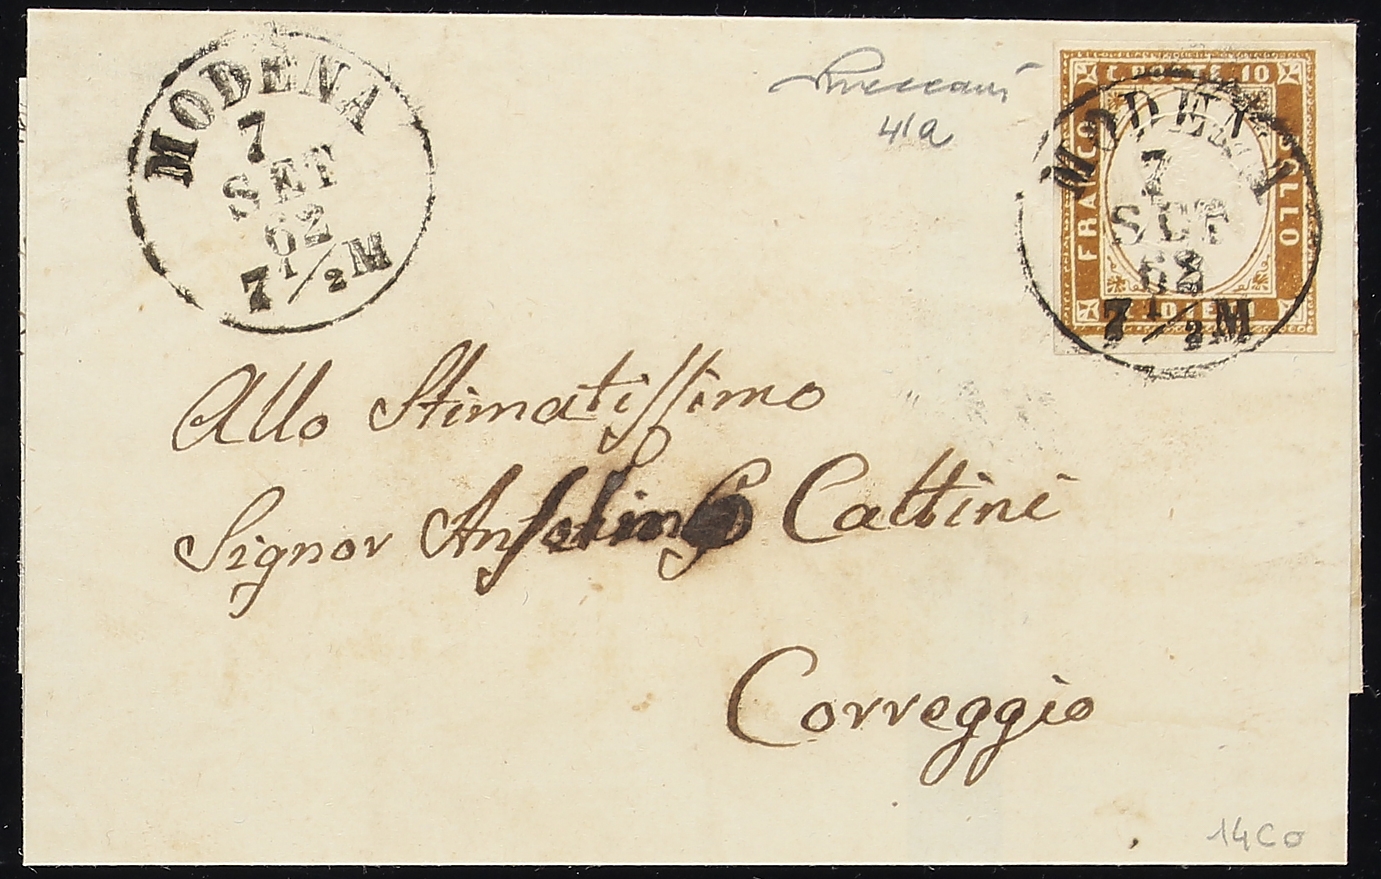 MODENA
7
SET
62
7 1/2 M
41a
C. POSTE 10
FRANCO
BOLLO
MODENA
7
SET
62
7 1/2 M
Allo Stimatissimo
Signor Anselmo Cattini
Correggio
14Co